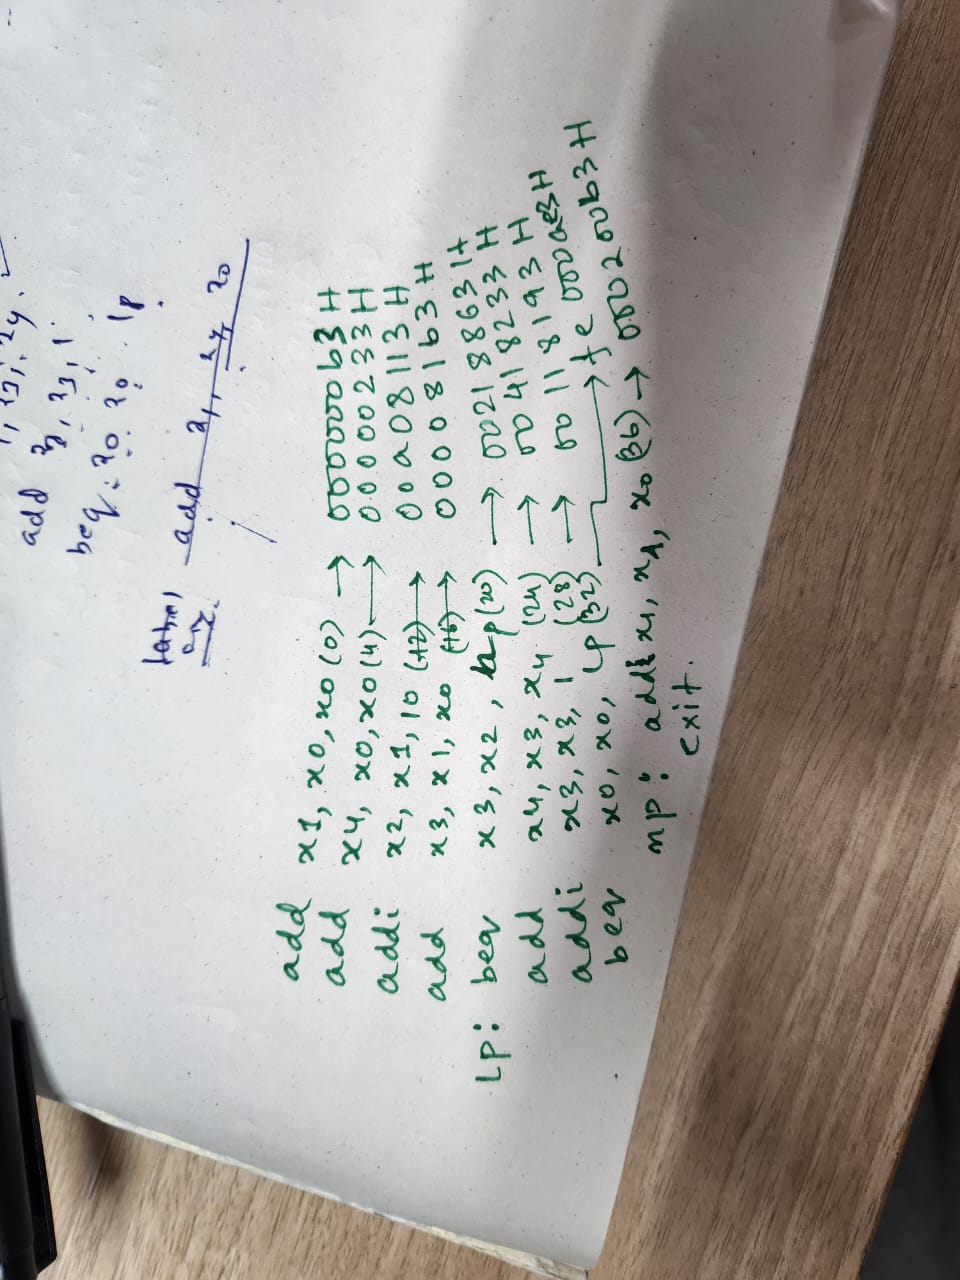 add 3, 23, 1
beq = 20. 20 lp
add 21, 24, 20
add x1, x0, x0 (0) → 000000b3 H
add x4, x0, x0 (4) → 00000233 H
addi x2, x1, 10 (12) → 00a08113 H
add x3, x1, x0 (16) → 00008163 H
LP: beq x3, x2, np (20) → 00218863 H
add x4, x3, x4 (24) → 00418233 H
addi x3, x3, 1 (28) → 00118193 H
beq x0, x0, LP (32) → fe000ae3 H
np: add x1, x4, x0 (36) → 000200b3 H
exit.